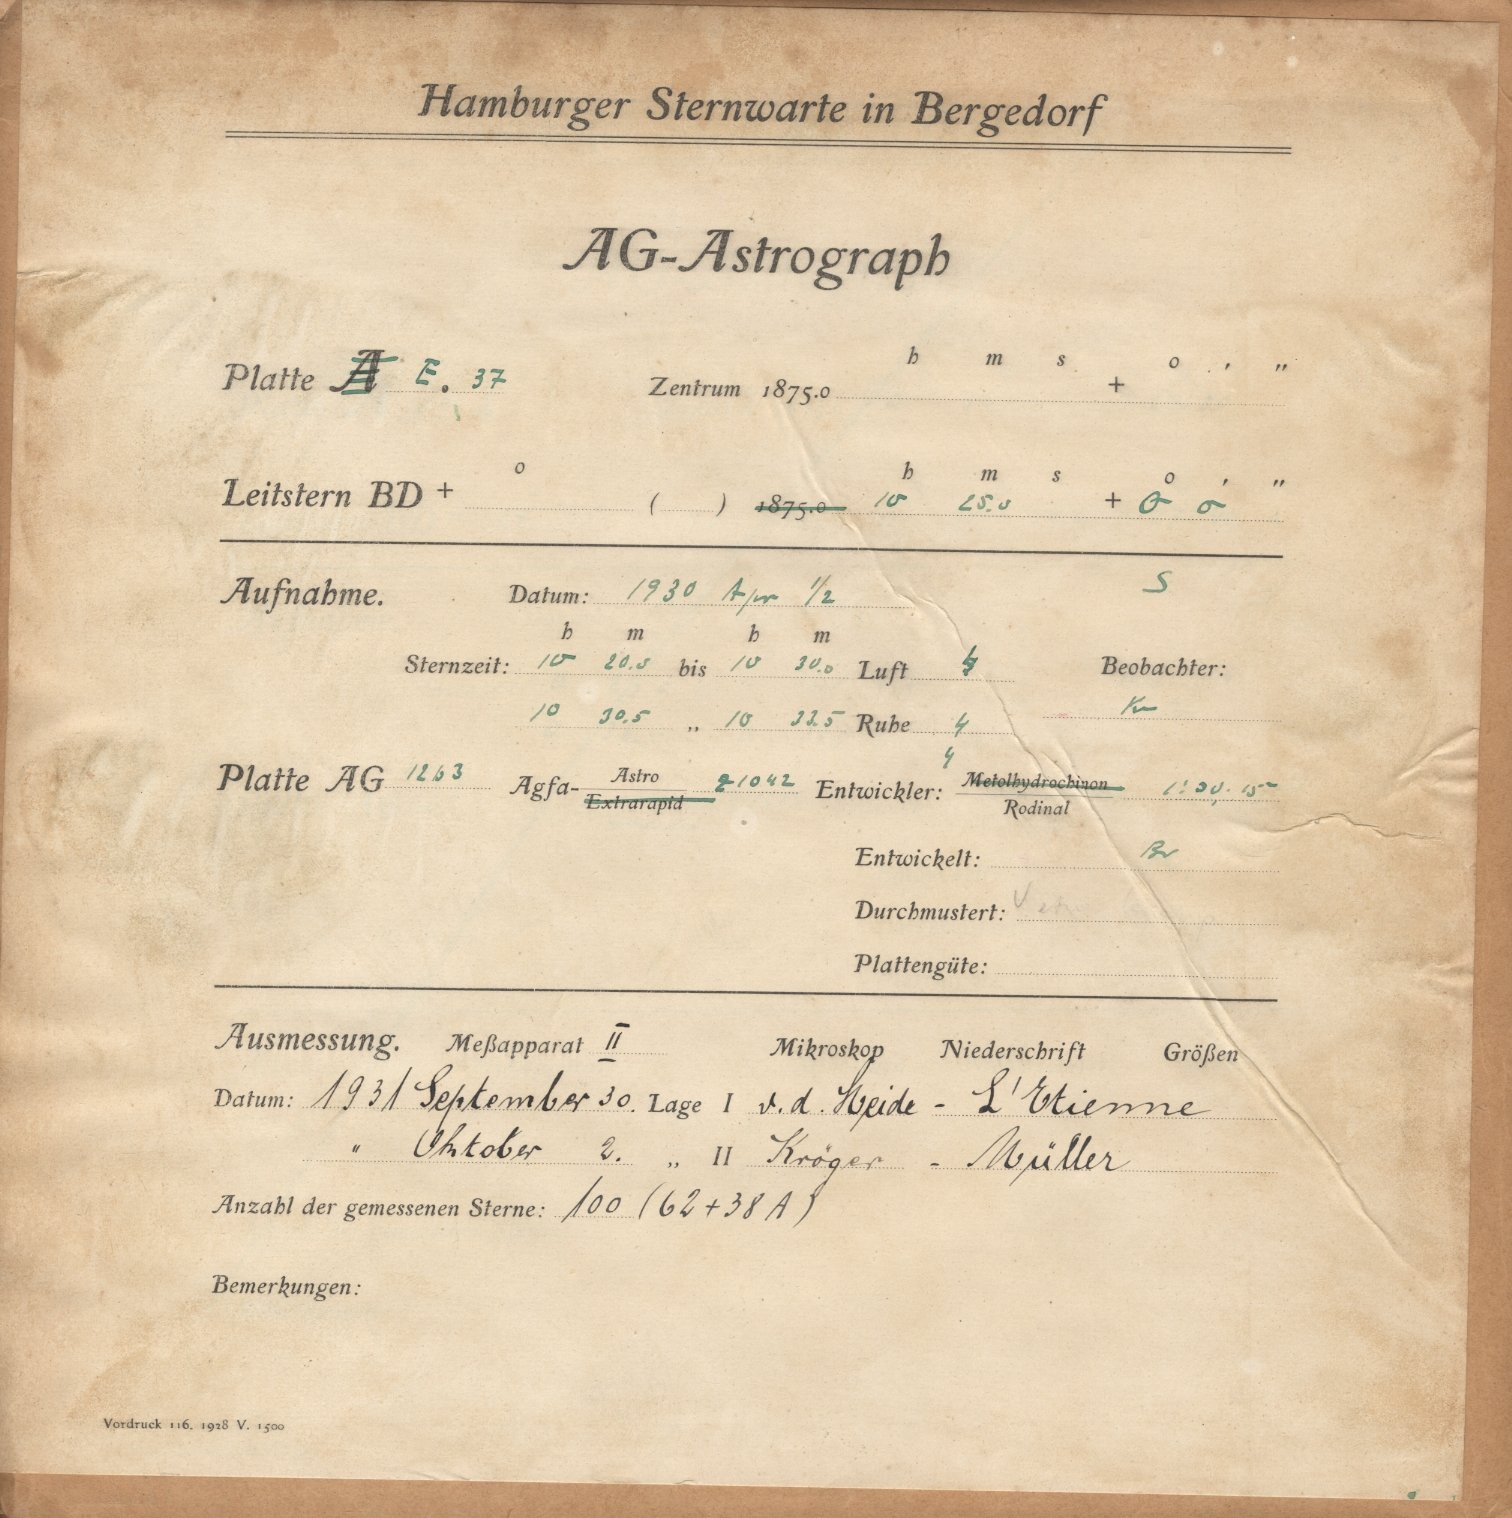 Hamburger Sternwarte in Bergedorf
AG-Astrograph
h m s ° ′ ″
Platte A E. 37 Zentrum 1875.0 +
° h m s ° ′ ″
Leitstern BD + ( ) 1875.0 10 25.0 + 0 0
Aufnahme. Datum: 1930 Apr 1/2 S
h m h m
Sternzeit: 10 20.0 bis 10 30.0 Luft Beobachter:
10 30.5 „ 10 33.5 Ruhe 4 Kr
4
Platte AG 1263 Agfa- Astro Extrarapid 21042 Entwickler: Metolhydrochinon Rodinal 1:30, 15
Entwickelt: Br
Durchmustert:
Plattengüte:
Ausmessung. Meßapparat II Mikroskop Niederschrift Größen
Datum: 1931 September 30. Lage I v. d. Heide - L'Etienne
" Oktober 2. „ II Kröger - Müller
Anzahl der gemessenen Sterne: 100 (62+38 A)
Bemerkungen:
Vordruck 116. 1928 V. 1500